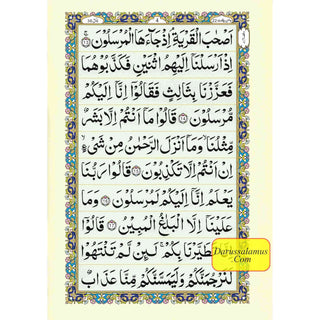 اَصۡحٰبَ الۡقَرۡيَةِ ۘ اِذۡ جَآءَهَا الۡمُرۡسَلُوۡنَ ۚ
اِذۡ اَرۡسَلۡنَاۤ اِلَيۡهِمُ اثۡنَيۡنِ فَكَذَّبُوۡهُمَا
فَعَزَّزۡنَا بِثَالِثٍ فَقَالُوۡۤا اِنَّاۤ اِلَيۡكُمۡ
مُّرۡسَلُوۡنَ قَالُوۡا مَاۤ اَنۡتُمۡ اِلَّا بَشَرٌ
مِّثۡلُنَا ۙ وَمَاۤ اَنۡزَلَ الرَّحۡمٰنُ مِنۡ شَىۡءٍ ۙ
اِنۡ اَنۡتُمۡ اِلَّا تَكۡذِبُوۡنَ قَالُوۡا رَبُّنَا
يَعۡلَمُ اِنَّاۤ اِلَيۡكُمۡ لَمُرۡسَلُوۡنَ وَمَا
عَلَيۡنَاۤ اِلَّا الۡبَلٰغُ الۡمُبِيۡنُ قَالُوۡۤا
اِنَّا تَطَيَّرۡنَا بِكُمۡ ۚ لَئِنۡ لَّمۡ تَنۡتَهُوۡا
لَنَرۡجُمَنَّكُمۡ وَلَيَمَسَّنَّكُمۡ مِّنَّا عَذَابٌ
Darussalamus
.Com